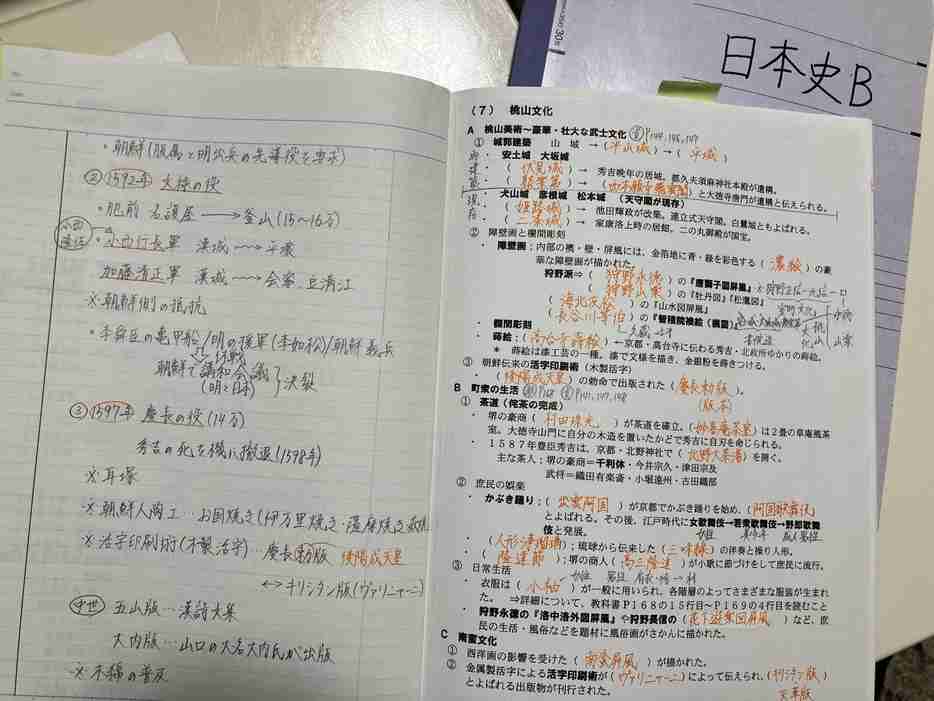 日本史B
・朝鮮(服属と明出兵の先導役を要求)
② 1592年 文禄の役
・肥前 名護屋 → 釜山(15〜16万)
・小西行長軍 漢城 → 平壌
加藤清正軍 漢城 → 会寧、豆満江
※朝鮮側の抵抗
・李舜臣の亀甲船/明の援軍(李如松)/朝鮮義兵
朝鮮で講和会議
(明と日本)
決裂
③ 1597年 慶長の役(14万)
秀吉の死を機に撤退(1598年)
※耳塚
※朝鮮人陶工…お国焼き(伊万里焼き・薩摩焼き・萩焼
※活字印刷術(木製活字)…慶長勅版 後陽成天皇
↔キリシタン版(ヴァリニャーニ)
中世 五山版…漢詩文集
大内版…山口の大名大内氏が出版
※木綿の普及
(7) 桃山文化
A 桃山美術〜豪華・壮大な武士文化 P144,146,147
① 城郭建築 山城 →(平山城)→(平城)
・安土城 大坂城
(伏見城)→ 秀吉晩年の居城。都久夫須麻神社本殿が遺構。
(聚楽第)→(西本願寺飛雲閣)と大徳寺唐門が遺構と伝えられる。
・犬山城 彦根城 松本城 (天守閣が現存)
(姫路城)→ 池田輝政が改築。連立式天守閣。白鷺城ともよばれる。
(二条城)→ 家康洛上時の居館。二の丸御殿が国宝。
② 障壁画と欄間彫刻
・障壁画:内部の襖・壁・屏風には、金箔地に青・緑を彩色する(濃絵)の豪
華な障壁画が描かれた。
狩野派⇒(狩野永徳)の『唐獅子図屏風』
(狩野山楽)の『牡丹図』『松鷹図』
(海北友松)の『山水図屏風』
(長谷川等伯)の『智積院襖絵(楓図)』
・欄間彫刻
・蒔絵:(高台寺蒔絵)←京都・高台寺に伝わる秀吉・北政所ゆかりの蒔絵。
* 蒔絵は漆工芸の一種。漆で文様を描き、金銀粉を蒔きつける。
③ 朝鮮伝来の活字印刷術(木製活字)
・(後陽成天皇)の勅命で出版された(慶長勅版)。
B 町衆の生活 P141,147,148
① 茶道(侘茶の完成)
・堺の豪商(村田珠光)が茶道を確立。(妙喜庵茶室)は2畳の草庵風茶
室。大徳寺山門に自分の木造を置いたかどで秀吉に自刃を命じられる。
・1587年豊臣秀吉は、京都・北野神社で(北野大茶湯)を開く。
主な茶人:堺の豪商=千利休・今井宗久・津田宗及
武将=織田有楽斎・小堀遠州・古田織部
② 庶民の娯楽
・かぶき踊り:(出雲阿国)が京都でかぶき踊りを始め、(阿国歌舞伎)
とよばれる。その後、江戸時代に女歌舞伎→若衆歌舞伎→野郎歌舞
伎と発展。
・(人形浄瑠璃):琉球から伝来した(三味線)の伴奏と操り人形。
・(隆達節):堺の商人(高三隆達)が小歌に節づけをして庶民に流行。
③ 日常生活
・衣服は(小袖)が一般に用いられ、各階層のよってさまざまな服装が生まれ
た。 ⇒詳細について、教科書P168の15行目〜P169の4行目を読むこと
・狩野永徳の『洛中洛外図屏風』や狩野長信の(花下遊楽図屏風)など、庶
民の生活・風俗などを題材に風俗画がさかんに描かれた。
C 南蛮文化
① 西洋画の影響を受けた(南蛮屏風)が描かれた。
② 金属製活字による活字印刷術が(ヴァリニャーニ)によって伝えられ、(キリシタン版)
とよばれる出版物が刊行された。
天草版